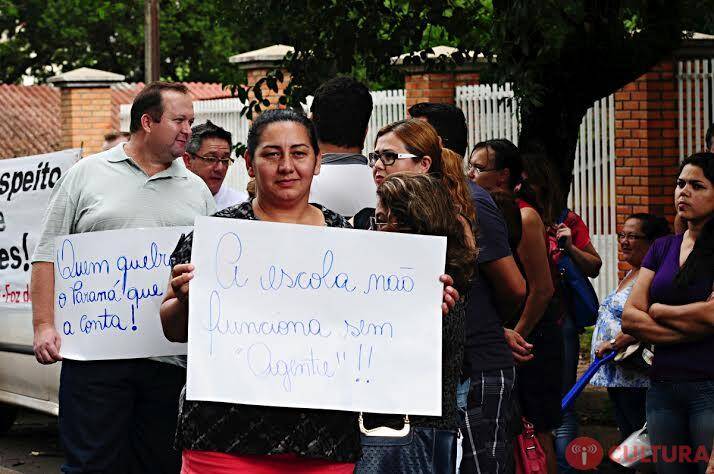 speito
e
es!
-Foz d
Quem quebr
o Paraná que
a conta!
A escola não
funciona sem
"Agente"!!
CULTURA
CULTURA